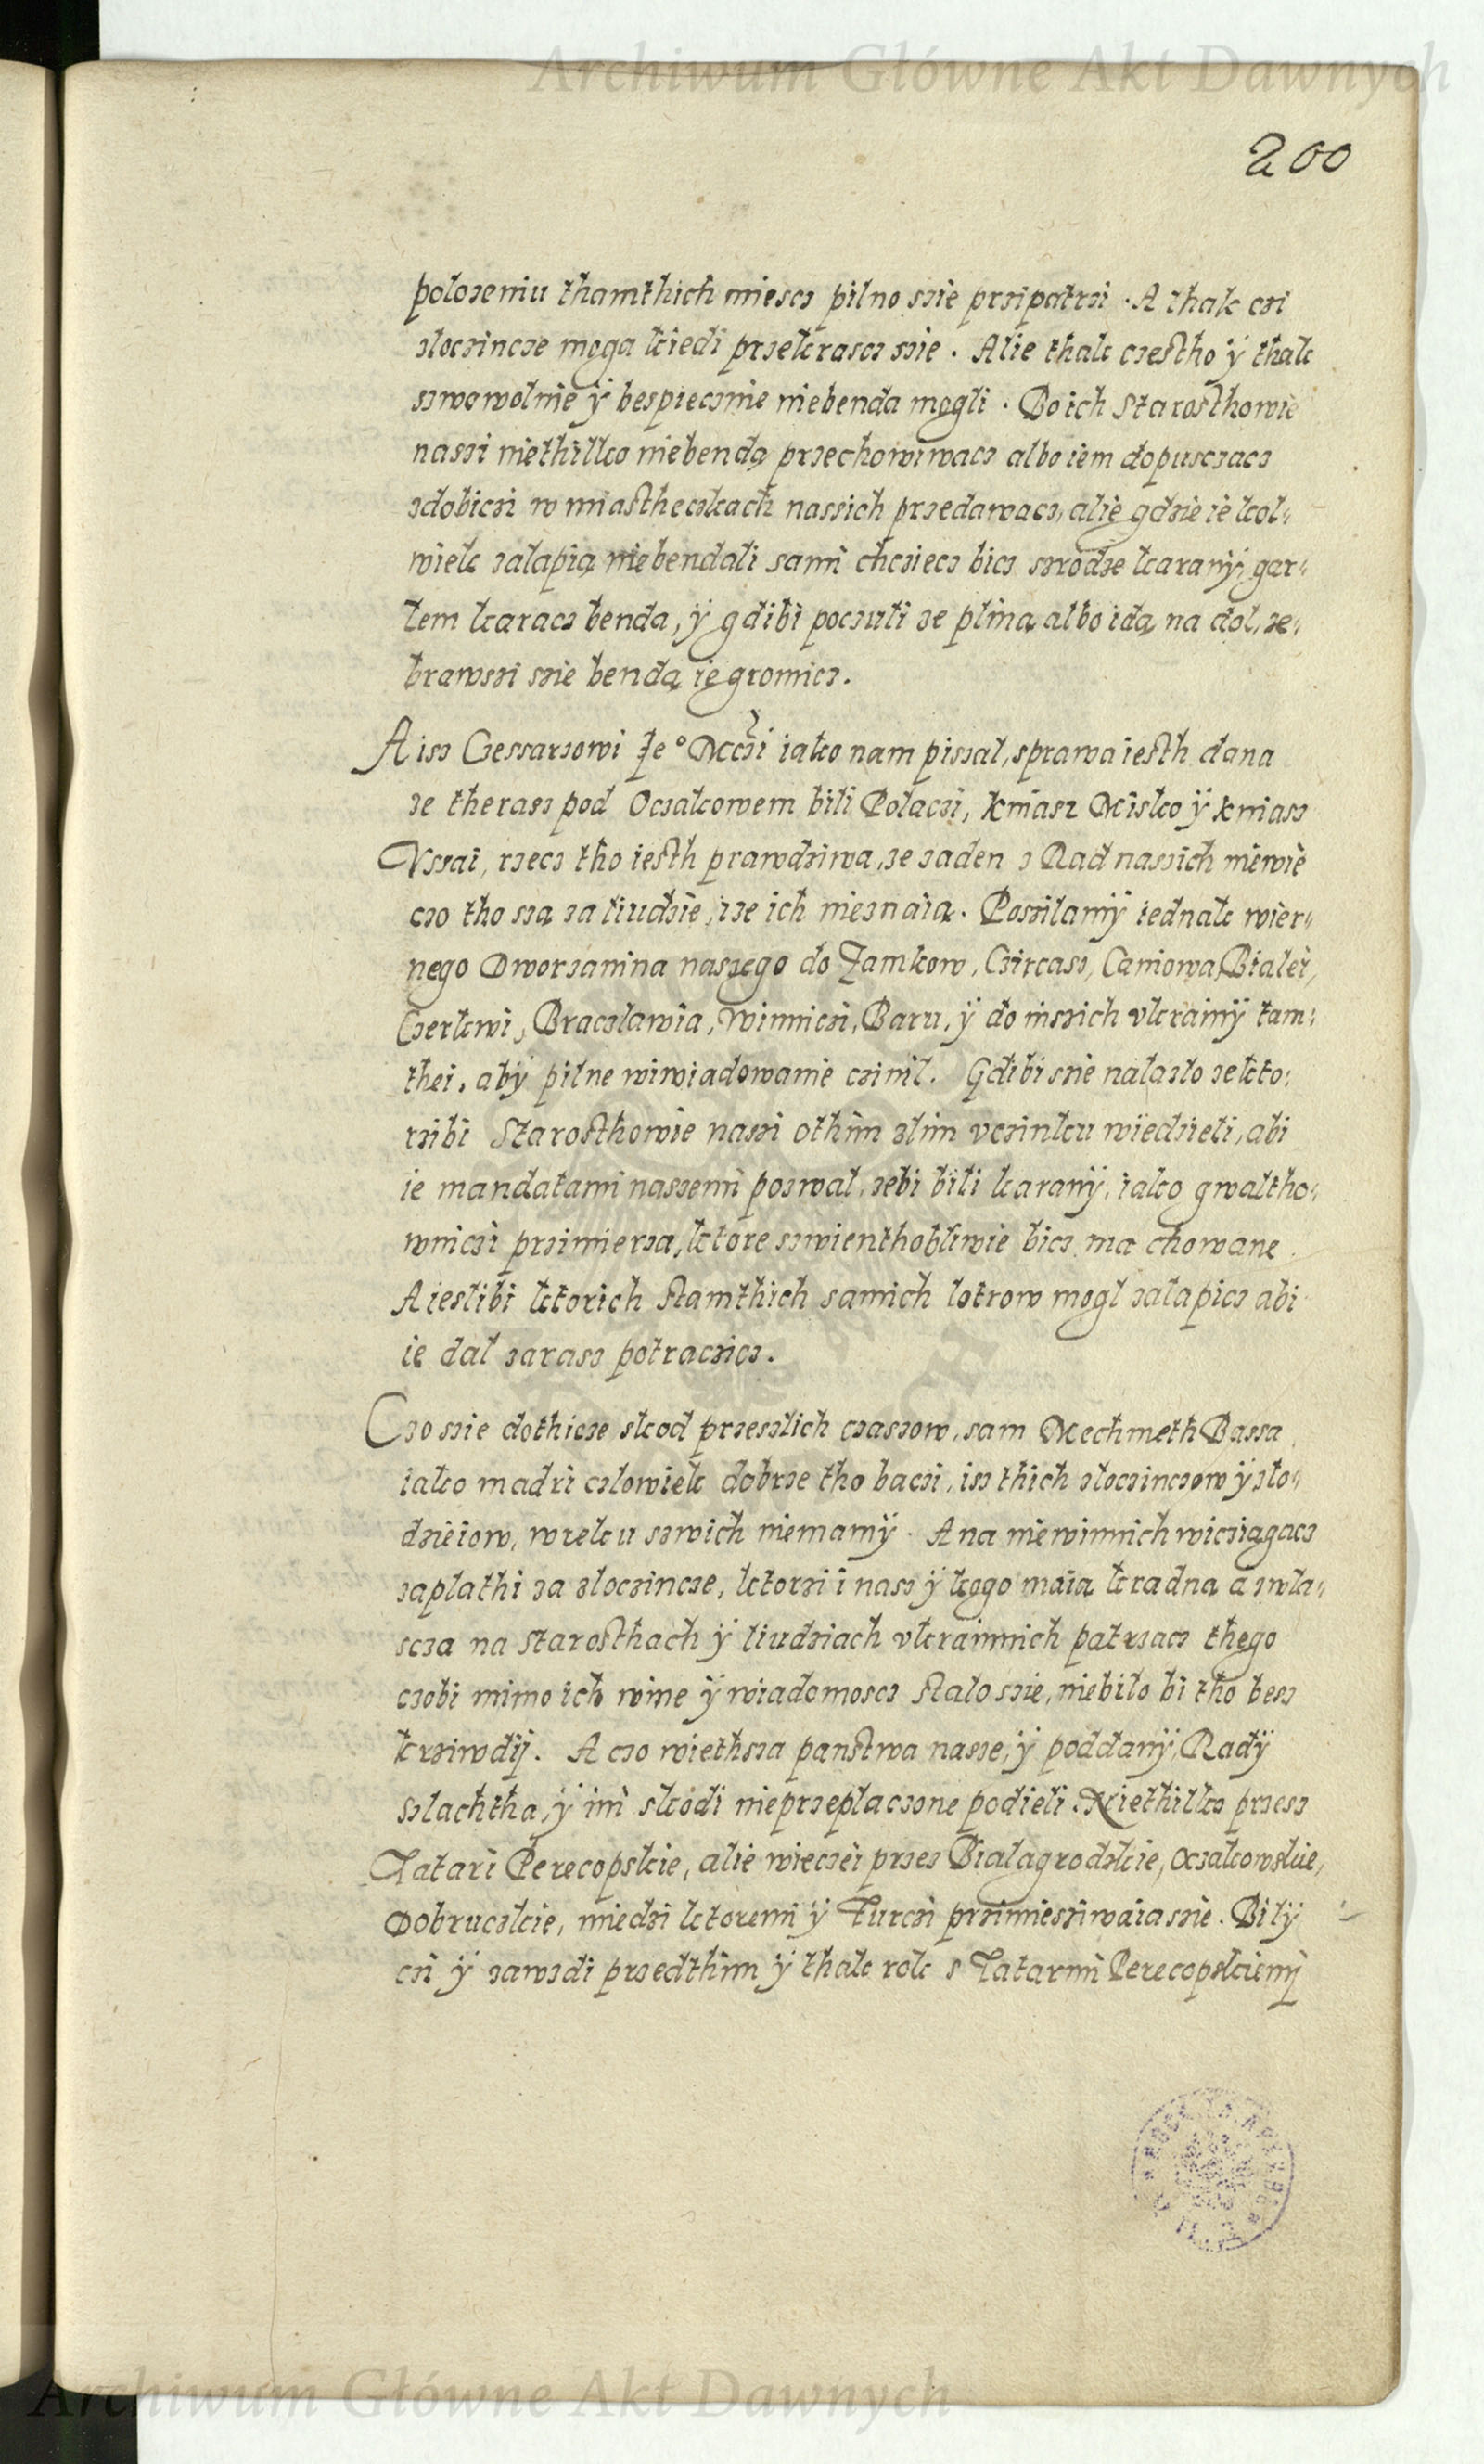 Archiwum Główne Akt Dawnych
200
polozeniu thamthich miescz pilno szie przipatrzi . A thak czi
zloczincze moga kiedi przekrascz szie . Alie thak czestho ÿ thak
szwowolnie ÿ bespiecznie niebenda mogli . Bo ich Starosthowie
naszi niethilko niebendą przechowiwacz albo iem dopusczacz
zdobiczi w miastheczkach nassich przedawacz, alie gdzie ie kol:
wiek zalapią niebendali sami chcziecz bicz srodze karanÿ, gar:
lem karacz benda, ÿ gdibi poczuli ze plina albo idą na dol, ze:
brawszi szie bendą ię gromicz.
A isz Czessarzowi Je° Mczi iako nam piszal, sprawa iesth dana
ze therasz pod Oczakowem bili Polaczi, kniasz Misko ÿ kniasz
Vssai, rzecz tho iesth prawdziwa, ze zaden z Rad naszich niewie
czo tho sza za liudzie, ize ich nieznaią. Poszilamÿ iednak wier:
nego Dworzanina naszego do Zamkow, Czircasz, Caniowa, Bialei,
Czerkwi, Braczlawia, Winniczi, Baru, ÿ do inszich vkrainÿ tam:
thei, abÿ pilne wiwiadowanie czinil. Gdibi szie nalazlo zekto:
rzibi Starosthowie naszi othim zlim vczinku wiedzieli, abi
ie mandatami naszemi pozwal, zebi bili karanÿ, iako gwaltho:
wniczi przimierza, ktore szwienthobliwie bicz ma chowane.
A ieslibi ktorich stamthich samich lotrow mogl zalapicz abi
ie dal zarasz potraczicz.
Czo szie dothicze skod przeszlich czaszow, sam Mechmeth Bassa
iako madri czlowiek dobrze tho baczi, isz thich zloczinczow ÿ zlo:
dzieiow, wreku szwich niemamÿ . A na niewinnich wicziagacz
zaplathi za zloczincze, ktorzi i nasz ÿ kogo maia kradna a zwla:
scza na starosthach ÿ liudziach vkrainnich patrzacz thego
czobi mimo ich wine ÿ wiadomoscz stalo szie, niebilo bi tho besz
krziwdÿ. A czo wiethsza panstwa nasze, ÿ poddanÿ, Radÿ
szlachtha, ÿ inni skodi nieprzeplaczone podieli. Niethilko przesz
Tatari Perecopskie, alie wieczei przez Bialagrodzkie, Oczakowskie,
Dobruczkie, miedzi ktoremi ÿ Turczi przimiesziwaia szie. Bilÿ
czi ÿ zawzdi przedthim ÿ thak rok s Tatarmi Perecopskiemÿ
Archiwum Główne Akt Dawnych